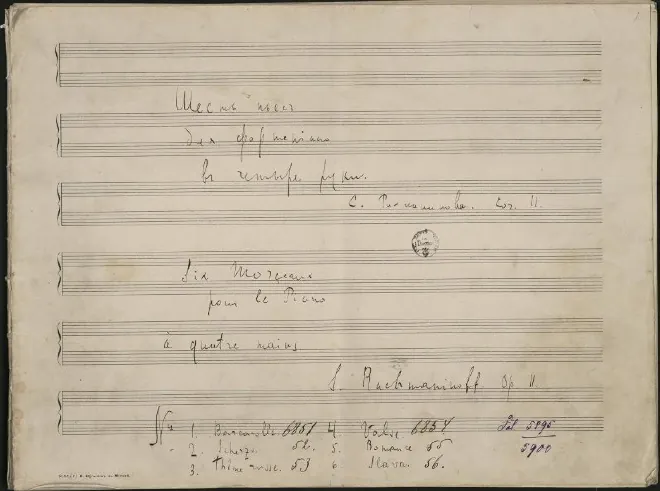 Шесть пьес
для фортепiано
въ четыре руки.
С. Рахманинова. Соч. 11.
Six Morceaux
pour le Piano
à quatre mains
S. Rachmaninoff Op 11
№ 1. Barcarolle 6851 4 Valse 6854 5895
2. Scherzo 52. 5. Romance 55 5900
3. Thème russe. 53 6 Slava. 56.